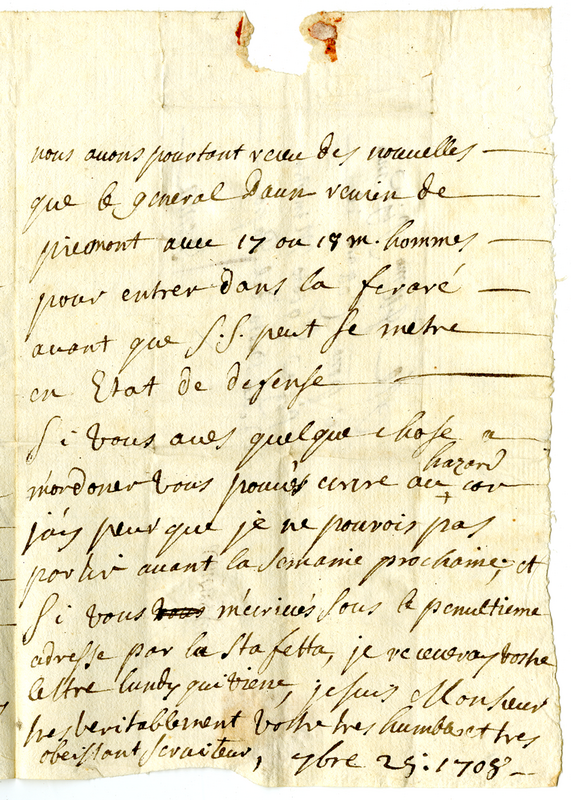 nous avons pourtant receu des nouvelles
que le general Daun revien de
piemont avec 17 ou 18 m. hommes
pour entrer dans la feraré
avant que S. S. peut se metre
en Etat de defense
Si vous avés quelque chose a
m'ordoner vous pouvés ecrire au hazard + car
j'ay peur que je ne pouvois pas
partir avant la semanie prochaine, et
Si vous m'ecrivés sous le penultieme
adresse par la Stafetta, je receveray vostre
lettre lundy qui viene, je suis Monsieur
tres veritablement vostre tres humble et tres
obeissant serviteur, 7bre 25: 1708